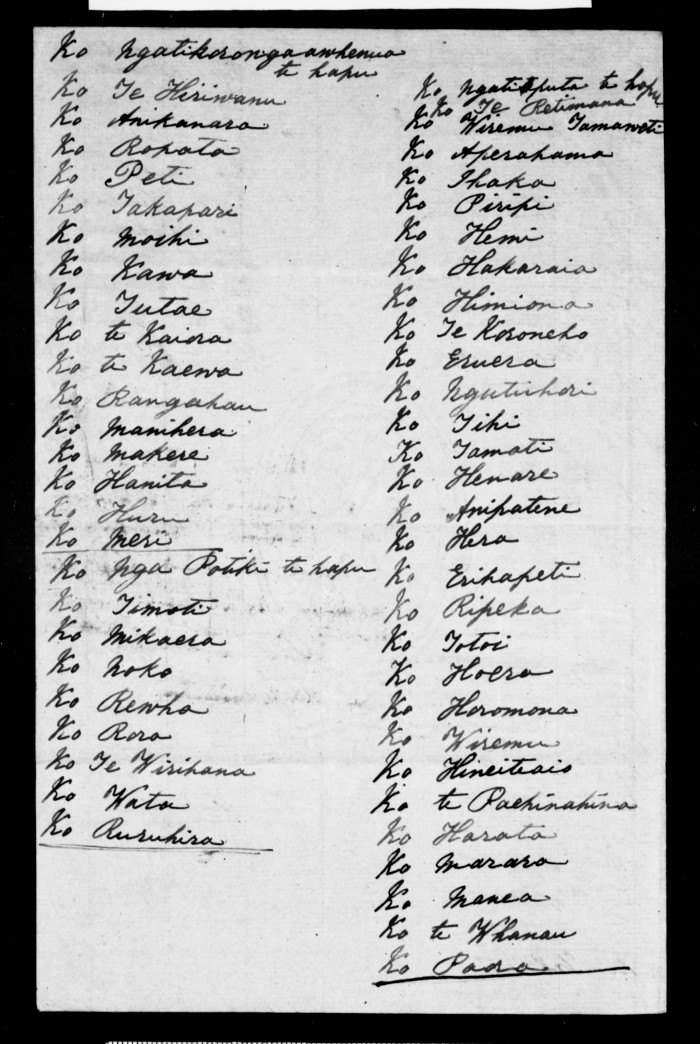 Ko Ngatikorongaawhenua
te hapu
Ko Te Hiriwanu
Ko Anikanara
Ko Ropata
Ko Peti
Ko Takapari
Ko Moihi
Ko Kawa
Ko Tutae
Ko te Kaiora
Ko te Kaewa
Ko Rangahau
Ko Manihera
Ko Makere
Ko Hanita
Ko Huru
Ko Meri
Ko Nga Potiki te hapu
Ko Timoti
Ko Mikaera
Ko Noko
Ko Rewha
Ko Rora
Ko Te Wirihana
Ko Wata
Ko Ruruhira
Ko te hapu
Ko Te Retimana
Ko Wiremu Tamaweti
Ko Aperahama
Ko Ihaka
Ko Piripi
Ko Hemi
Ko Hakaraia
Ko Himiona
Ko Te Koroneho
Ko Eruera
Ko
Ko Tihi
Ko Tamati
Ko Henare
Ko Anihatene
Ko Hera
Ko Erihapeti
Ko Ripeka
Ko Totoi
Ko Hoera
Ko Horomona
Ko Wiremu
Ko Hineitiaio
Ko te Paehinahina
Ko Harata
Ko Marara
Ko Manea
Ko te Whanau
Ko Paora